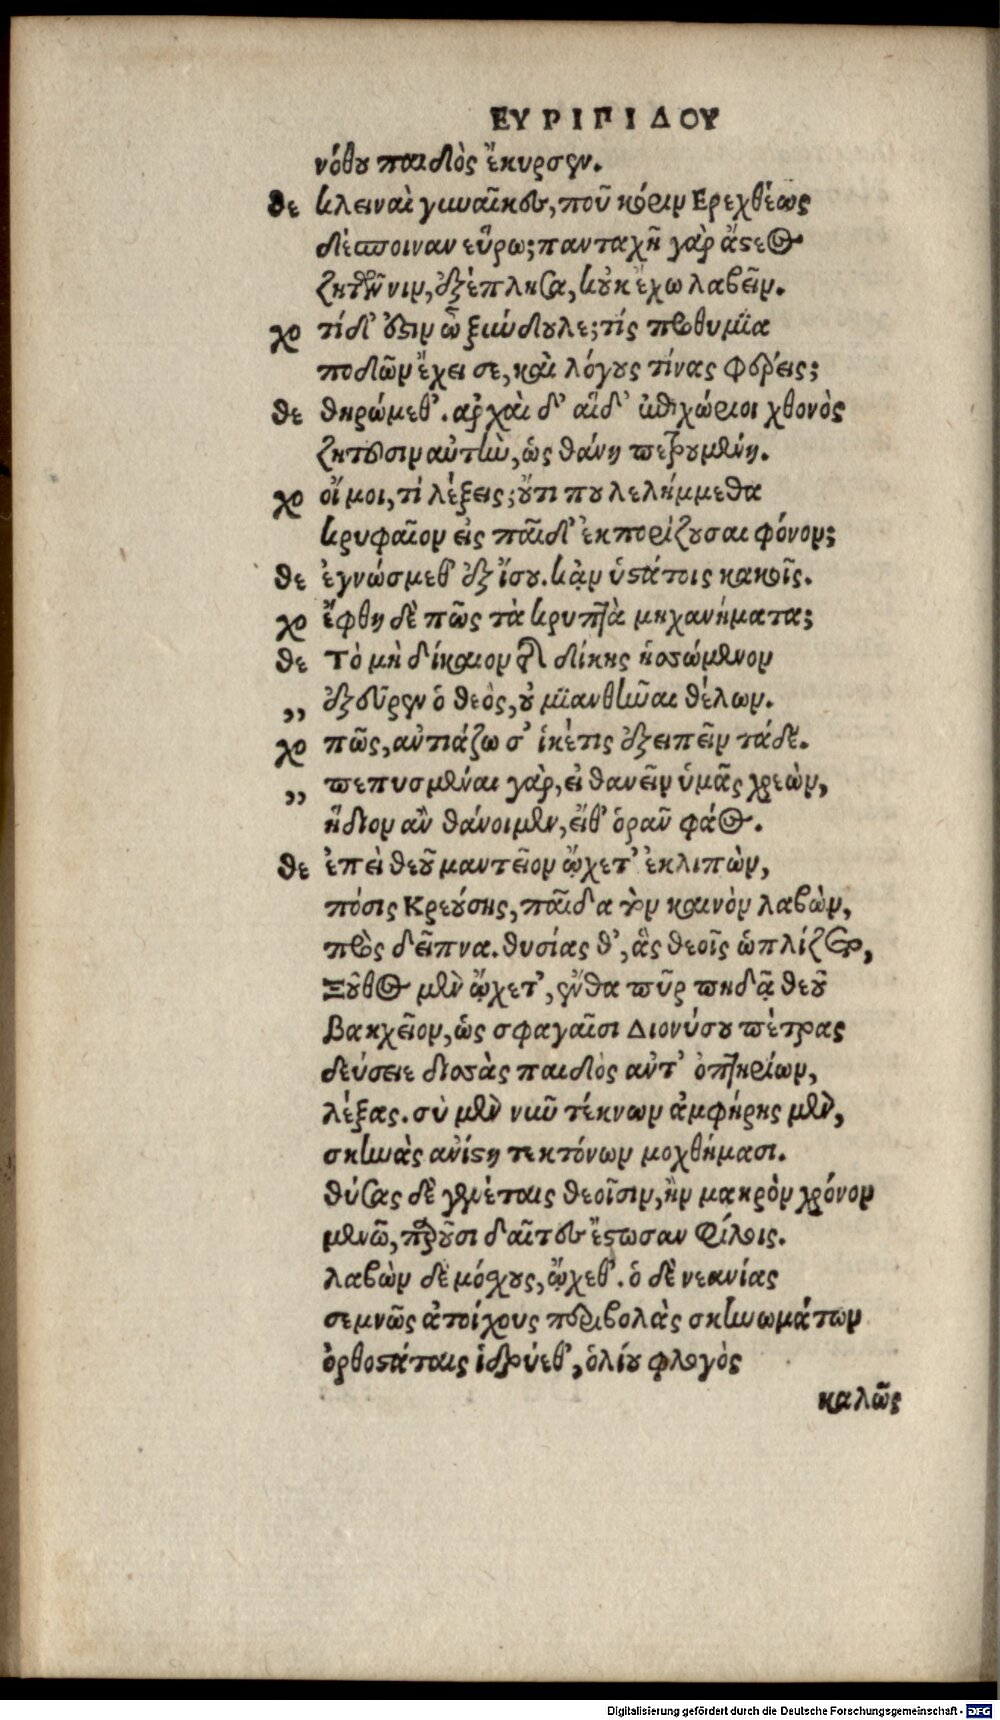 ΕΥΡΙΠΙΔΟΥ
νόθου παιδὸς ἔκυρσεν.
θε κλειναὶ γυναῖκες, ποῦ κόριν Ερεχθέως
δέσποιναν εὕρω; πανταχῆ γὰρ ἄστεος
ζητῶν νιν, ἐξέπλησα, κοὐκ ἔχω λαβεῖν.
χο τί δ' ἔστιν ὦ ξύνδουλε; τίς προθυμία
ποδῶν ἔχει σε, καὶ λόγους τίνας φέρεις;
θε θηρώμεθ'. αρχαὶ δ' αἵδ' ἐπιχώριοι χθονὸς
ζητοῦσιν αὐτὴν, ὡς θάνῃ πετρουμένη.
χο οἴ μοι, τί λέξεις; οὔτι που λελήμμεθα
κρυφαῖον εἰς παῖδ' ἐκπορίζουσαι φόνον;
θε ἐγνώσμεθ' ἐξ ἴσου. κἀν ὑστάτοις κακοῖς.
χο ἔφθη δὲ πῶς τὰ κρυπτὰ μηχανήματα;
θε Τὸ μὴ δίκαιον τῆς δίκης ἡσσώμενον
„ ἐξεῦρεν ὁ θεὸς, οὐ μιανθῆναι θέλων.
χο πῶς, αὐτιάζω σ' ἱκέτις ἐξειπεῖν τάδε.
„ πεπυσμέναι γὰρ, εἰ θανεῖν ὑμᾶς χρεὼν,
ἥδιον ἂν θάνοιμεν, εἴθ' ὁρᾶν φάος.
θε ἐπεὶ θεοῦ μαντεῖον ᾤχετ' ἐκλιπὼν,
πόσις Κρεούσης, παῖδα τὸν καινὸν λαβὼν,
πρὸς δεῖπνα. θυσίας θ', ἃς θεοῖς ὡπλίζετο,
Ξοῦθος μὲν ᾤχετ', ἔνθα πῦρ πηδᾷ θεοῦ
Βακχεῖον, ὡς σφαγαῖσι Διονύσου πέτρας
δεύσειε δισσὰς παιδὸς αὐτ' ὀπτηρίων,
λέξας. σὺ μὲν νῦν τέκνων ἀμφήρης μὲν,
σκηνὰς ανίστη τεκτόνων μοχθήμασι.
θύσας δὲ γενέταις θεοῖσιν, ἢν μακρὸν χρόνον
μενῶ, παροῦσι δαῖτες ἔστωσαν φίλοις.
λαβὼν δὲ μόσχους, ᾤχεθ'. ὁ δὲ νεανίας
σεμνῶς ἀτοίχους περιβολὰς σκηνωμάτων
ὀρθοστάταις ἱδρύεθ', ὁλίου φλογὸς
καλῶς
Digitalisierung gefördert durch die Deutsche Forschungsgemeinschaft - DFG